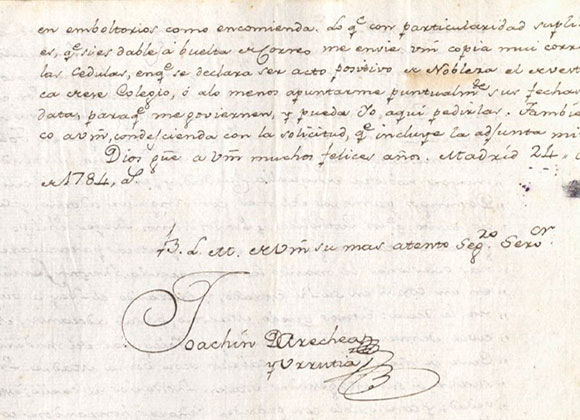 en emboltorios como encomienda. Lo q.e con particularidad supli
es, q.e si es dable á buelta de Correo me envie Vm̃ copia mui corr
las Cedulas, en q.e se declara ser acto posìtivo de Nobleza el Vesti
ca de ese Colegio, ó alo menos apuntarme puntualm.te sus fechas
data, para q.e me goviernen, y pueda Yo, aquí pedirlas. Tambie
co a Vm̃, condescienda con la solicitud, q.e incluye la adjunta mi
Dios gũe a Vm̃ muchos felices años. Madrid 24
de 1784, a.s
B. L. M. de Vm̃ su mas atento Seg.ro Ser.or
Joachin de Arechea
y Urrutia